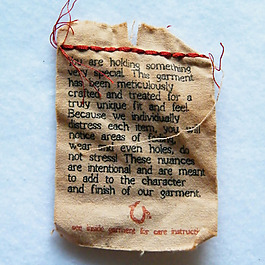 You are holding something
very special. This garment
has been meticulously
crafted and treated for a
truly unique fit and feel.
Because we individually
distress each item, you will
notice areas of fading,
wear and even holes, do
not stress! These nuances
are intentional and are meant
to add to the character
and finish of our garment.
see inside garment for care instruct